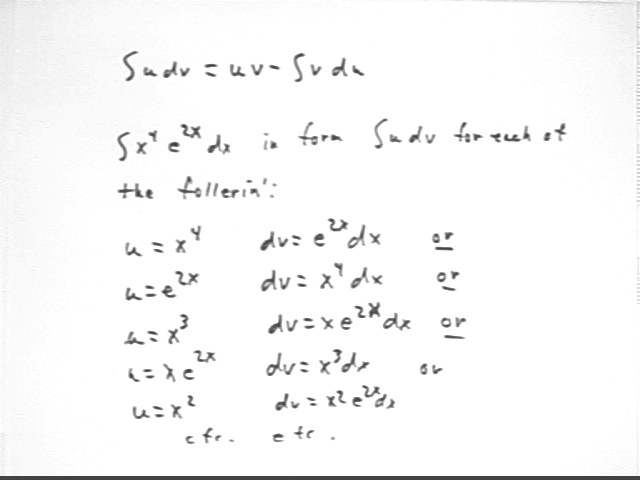 ∫u dv = uv - ∫v du
∫x⁴ e²ˣ dx in form ∫u dv for each of
the follerin':
u = x⁴ dv = e²ˣ dx or
u = e²ˣ dv = x⁴ dx or
u = x³ dv = x e²ˣ dx or
u = x e²ˣ dv = x³ dx or
u = x² dv = x² e²ˣ dx
etc. etc.